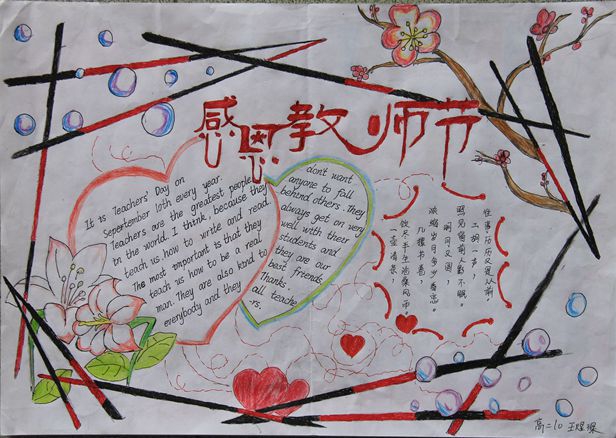 感恩教师节
It is Teachers' Day on
Seperternber 10th every year.
Teachers are the greatest people
in the world. I think, because they
teach us how to write and read.
The most important is that they
teach us how to be a real
man. They are also kind to
everybody and they
don't want
anyone to fall
behind others. They
always get on very
well with their
students and
they are our
best friends
Thanks
all teache
rs.
一壶清茶,
饮尽半生沧桑风雨。
几摞书卷,
浓缩岁月多少眷恋。
明月又圆,
照见窗前人影不眠。
二胡声,
往事历历又从前
高二10